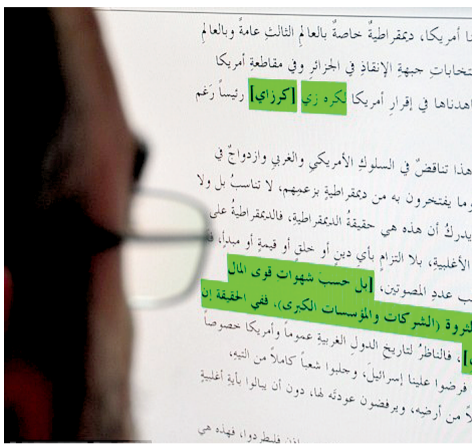 نا أمريكا، ديمقراطيةٌ خاصةٌ بالعالمِ الثالثِ عامةً وبالعالمِ
تخاباتِ جبهةِ الإنقاذِ في الجزائرِ وفي مقاطعةِ أمريكا
اهدناها في إقرارِ أمريكا لكره زي [كرزاي] رئيساً رَغم
هذا تناقضٌ في السلوكِ الأمريكي والغربي وازدواجٌ في
وما يفتخرون به من ديمقراطيةٍ بزعمهم، لا تناسبُ بل ولا
يدركُ أن هذه هي حقيقةُ الديمقراطيةِ، فالديمقراطيةُ على
الأغلبيةِ، بلا التزامٍ بأي دينٍ أو خلقٍ أو قيمةٍ أو مبدأ،
ب عددِ المصوتين، [بل حسبَ شهواتِ قوى المال
لثروة (الشركات والمؤسسات الكبرى). ففي الحقيقة إن
]، فالناظرُ لتاريخِ الدولِ الغربيةِ عموماً وأمريكا خصوصاً
فرضوا علينا إسرائيلَ، وجلبوا شعباً كاملاً من التيهِ،
لاً من أرضِه، ويرفضون عودتَه لها، دون أن يبالوا بأيةِ أغلبيةٍ
فليطردوا، فهذه هي